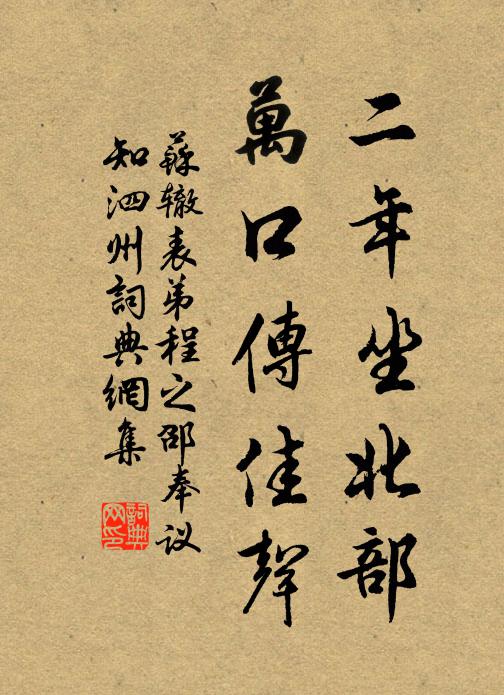 二年坐北部
萬口傳佳聲
蘇辙表弟程之邵奉议
知泗州詞典網集
詞典
网印